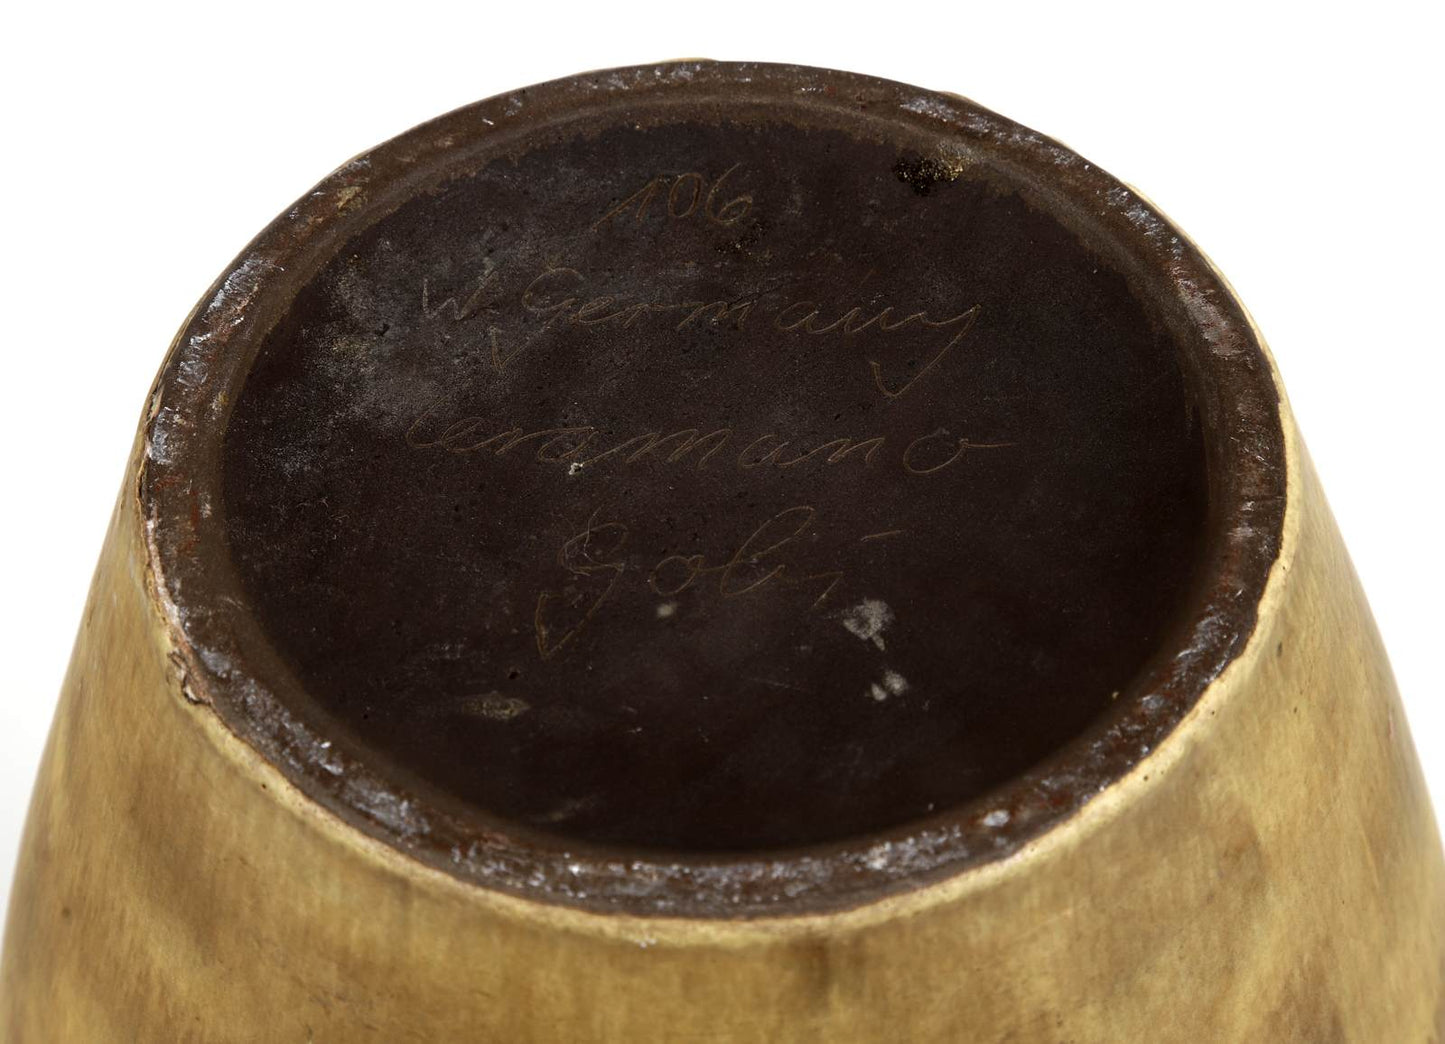 106
W. Germany
ceramano
Gobi